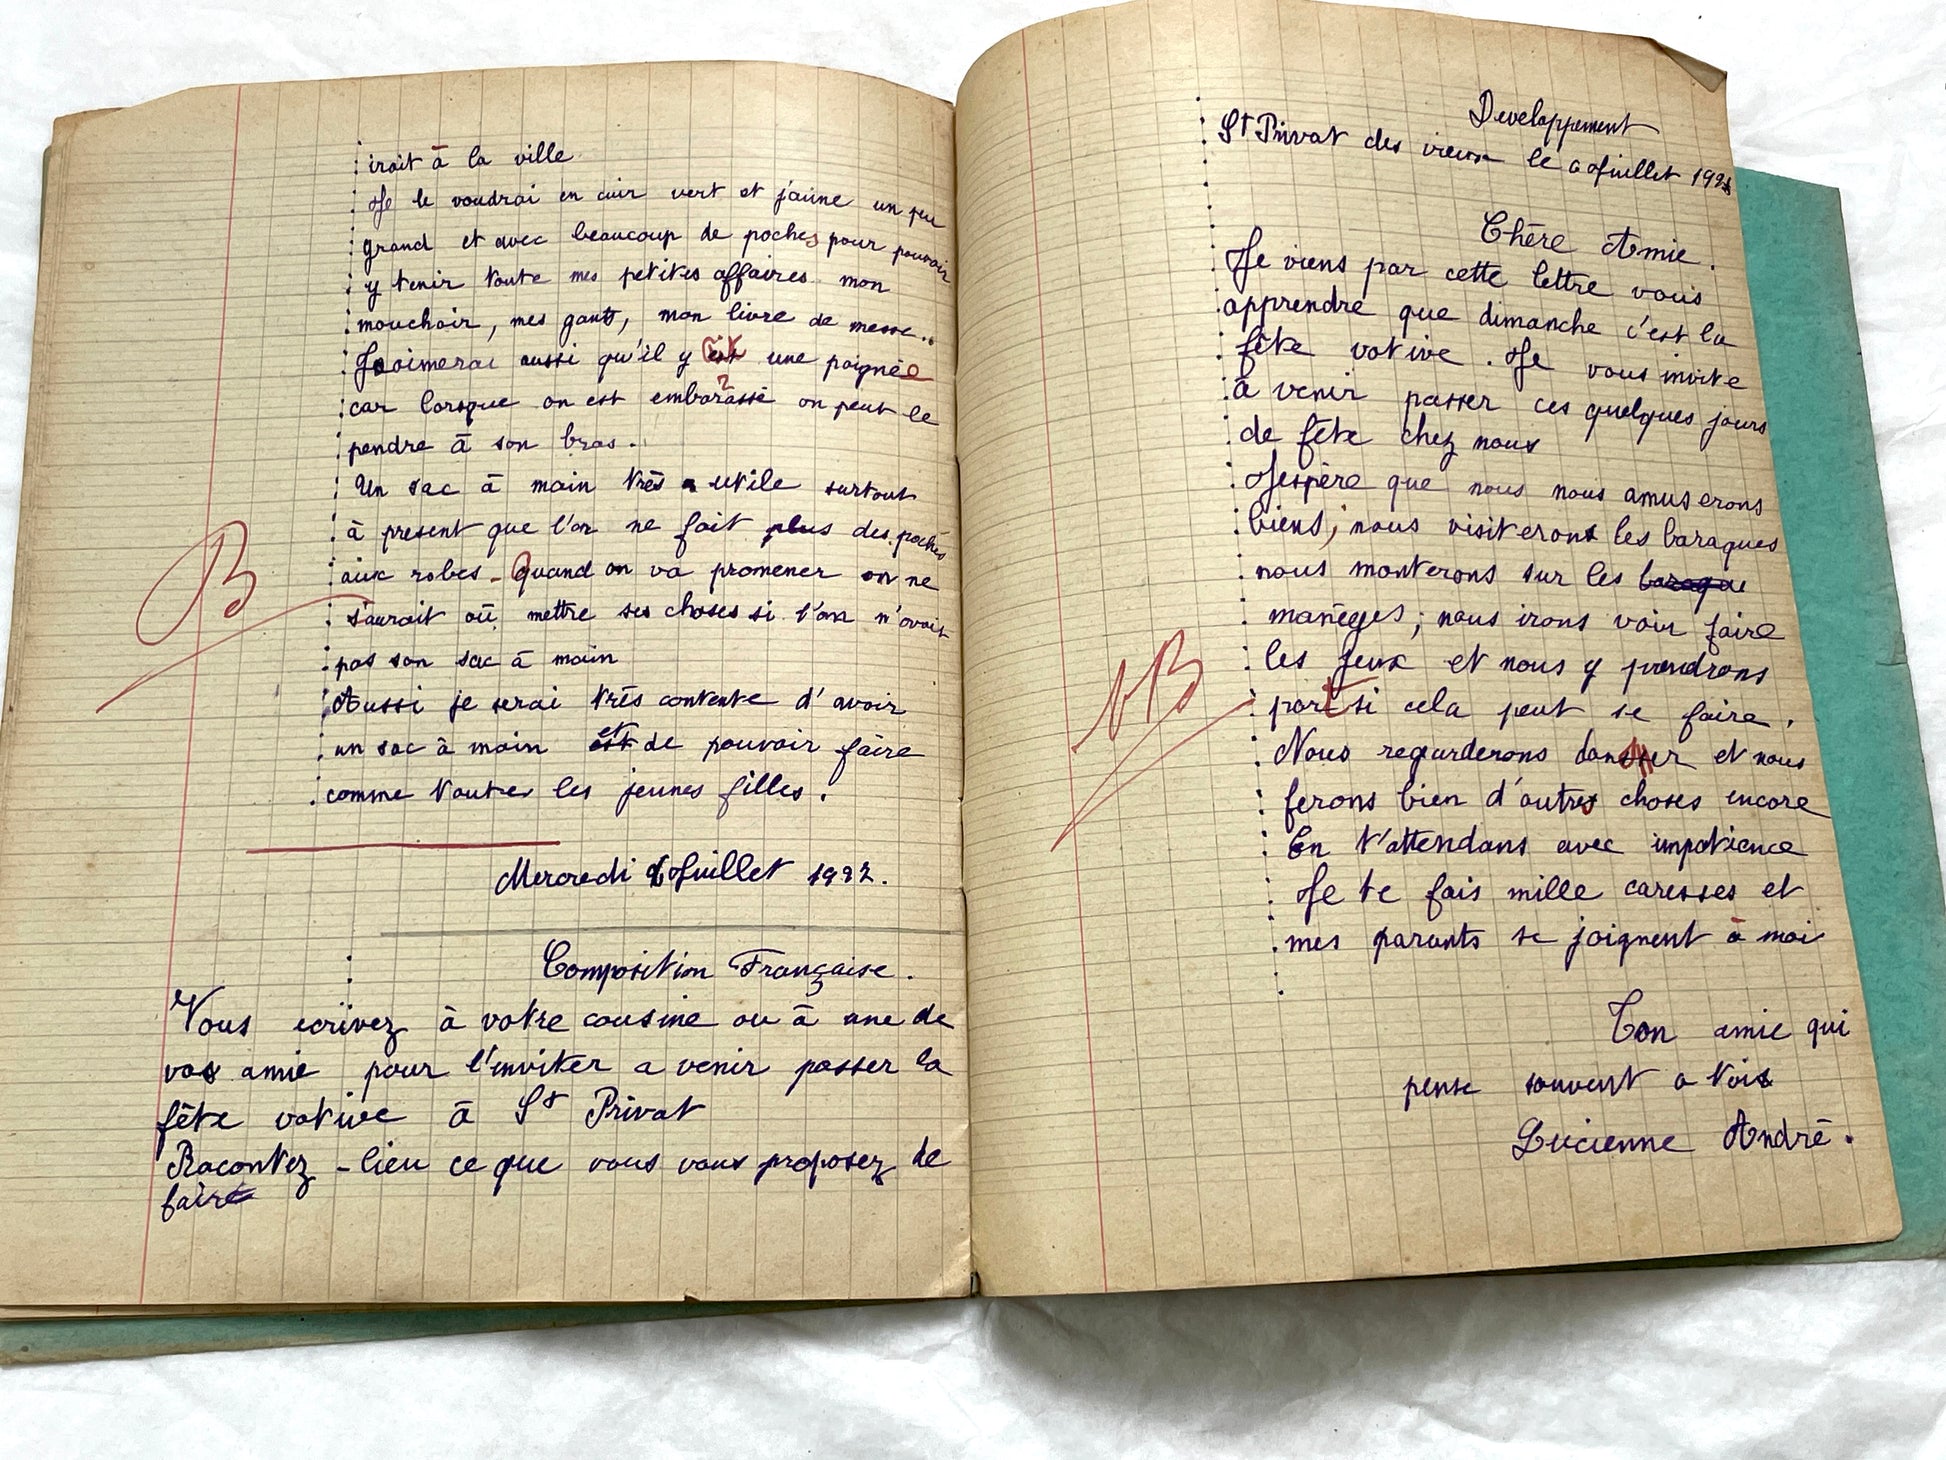 irait à la ville
Je le voudrai en cuir vert et jaune un peu
grand et avec beaucoup de poches pour pouvoir
y tenir toute mes petites affaires mon
mouchoir, mes gants, mon livre de messe..
J'aimerai aussi qu'il y ait une poignée
car lorsque on est embarrassé on peut le
pendre à son bras.
Un sac à main très utile surtout
à present que l'on ne fait plus des poches
aux robes. Quand on va promener on ne
saurait où mettre ses choses si l'on n'avait
pas son sac à main
Aussi je serai très contente d'avoir
un sac à main et de pouvoir faire
comme toutes les jeunes filles.
B
Mercredi 6 Juillet 1932.
Composition Française.
Vous ecrivez à votre cousine ou à une de
vos amie pour l'inviter a venir passer la
fête votive à St Privat
Racontez-lieu ce que vous vous proposez de
faire
Developpement
St Privat des vieux le Juillet 193
Chère Amie.
Je viens par cette lettre vous
apprendre que dimanche c'est la
fête votive. Je vous invite
à venir passer ces quelques jours
de fête chez nous
J'espère que nous nous amuserons
bien; nous visiterons les baraques
nous monterons sur les baraque
manèges; nous irons voir faire
les jeux et nous y prendrons
part si cela peut se faire.
Nous regarderons danser et nous
ferons bien d'autres choses encore
En t'attendans avec impatience
Je te fais mille caresses et
mes parents se joignent à moi
tB
Ton amie qui
pense souvent a toi
Lucienne André.